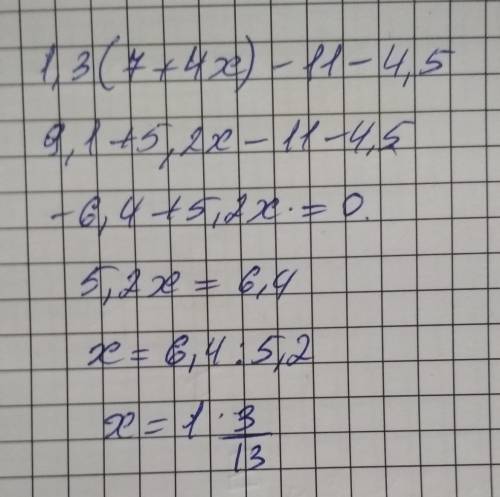 1,3(7+4x)-11-4,5
9,1+5,2x-11-4,5
-6,4+5,2x=0.
5,2x=6,4
x=6,4:5,2
x=1 3/13